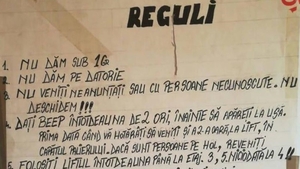 REGULI
1. NU DĂM SUB 1G
2. NU DĂM PE DATORIE
3. NU VENIȚI NEANUNȚAȚI SAU CU PERSOANE NECUNOSCUTE. NU
DESCHIDEM!!!
4. DAȚI BEEP ÎNTOTDEAUNA DE 2 ORI, ÎNAINTE SĂ APĂREȚI LA UȘĂ.
PRIMA DATĂ CÂND VĂ HOTĂRÂȚI SĂ VENIȚI ȘI A 2-A OARĂ LA LIFT, ÎN
CAPĂTUL PALIERULUI. DACĂ SUNT PERSOANE PE HOL, REVENIȚI
5. FOLOSIȚI LIFTUL ÎNTOTDEAUNA PÂNĂ LA ETAJ. 3, 5. NICIODATĂ LA 4!!